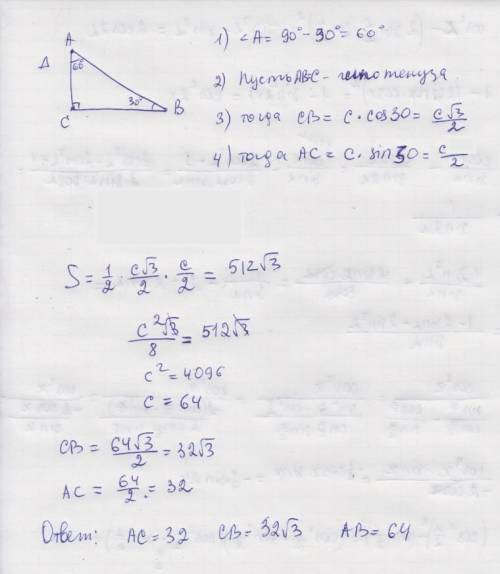 A
Δ
60
C
30°
B
1) ∠A = 90° - 30° = 60°
2) Пусть ABC - гипотенуза
3) тогда CB = c · cos30 = c√3/2
4) тогда AC = c · sin30 = c/2
S = 1/2 · c√3/2 · c/2 = 512√3
c²√3/8 = 512√3
c² = 4096
c = 64
CB = 64√3/2 = 32√3
AC = 64/2 = 32
Ответ: AC = 32 CB = 32√3 AB = 64